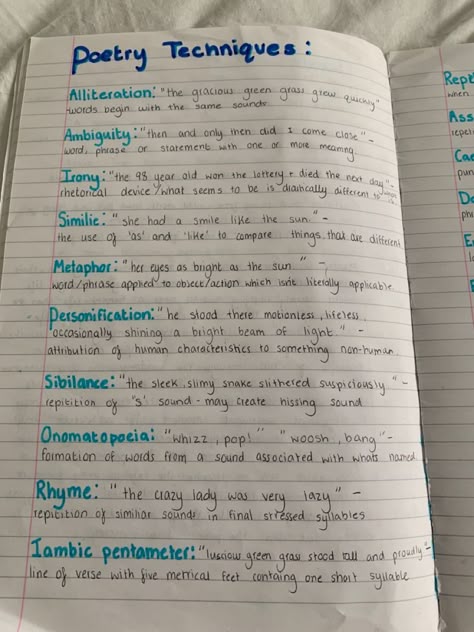 Poetry Techniques:
Alliteration: "the gracious green grass grew quickly"
words begin with the same sounds
Ambiguity: "then and only then did I come close" -
word, phrase or statement with one or more meaning
Irony: "the 98 year old won the lottery + died the next day" -
rhetorical device/what seems to be is diatically different to
Similie: "she had a smile like the sun" -
the use of 'as' and 'like' to compare things that are different
Metaphor: "her eyes as bright as the sun" -
word/phrase applied to object/action which isnt literally applicable
Personification: "he stood there motionless, lifeless,
occasionally shining a bright beam of light" -
attribution of human characteristics to something non-human
Sibilance: "the sleek, slimy snake slithered suspiciously" -
repitition of 's' sound - may create hissing sound
Onomatopoeia: "whizz, pop!" "woosh, bang" -
formation of words from a sound associated with whats named
Rhyme: "the crazy lady was very lazy" -
repitition of similiar sounds in final stressed syllables
Iambic pentameter: "luscious green grass stood tall and proudly" -
line of verse with five metrical feet containg one short syllable
Rept
when
Ass
repe
Cae
pun
phr